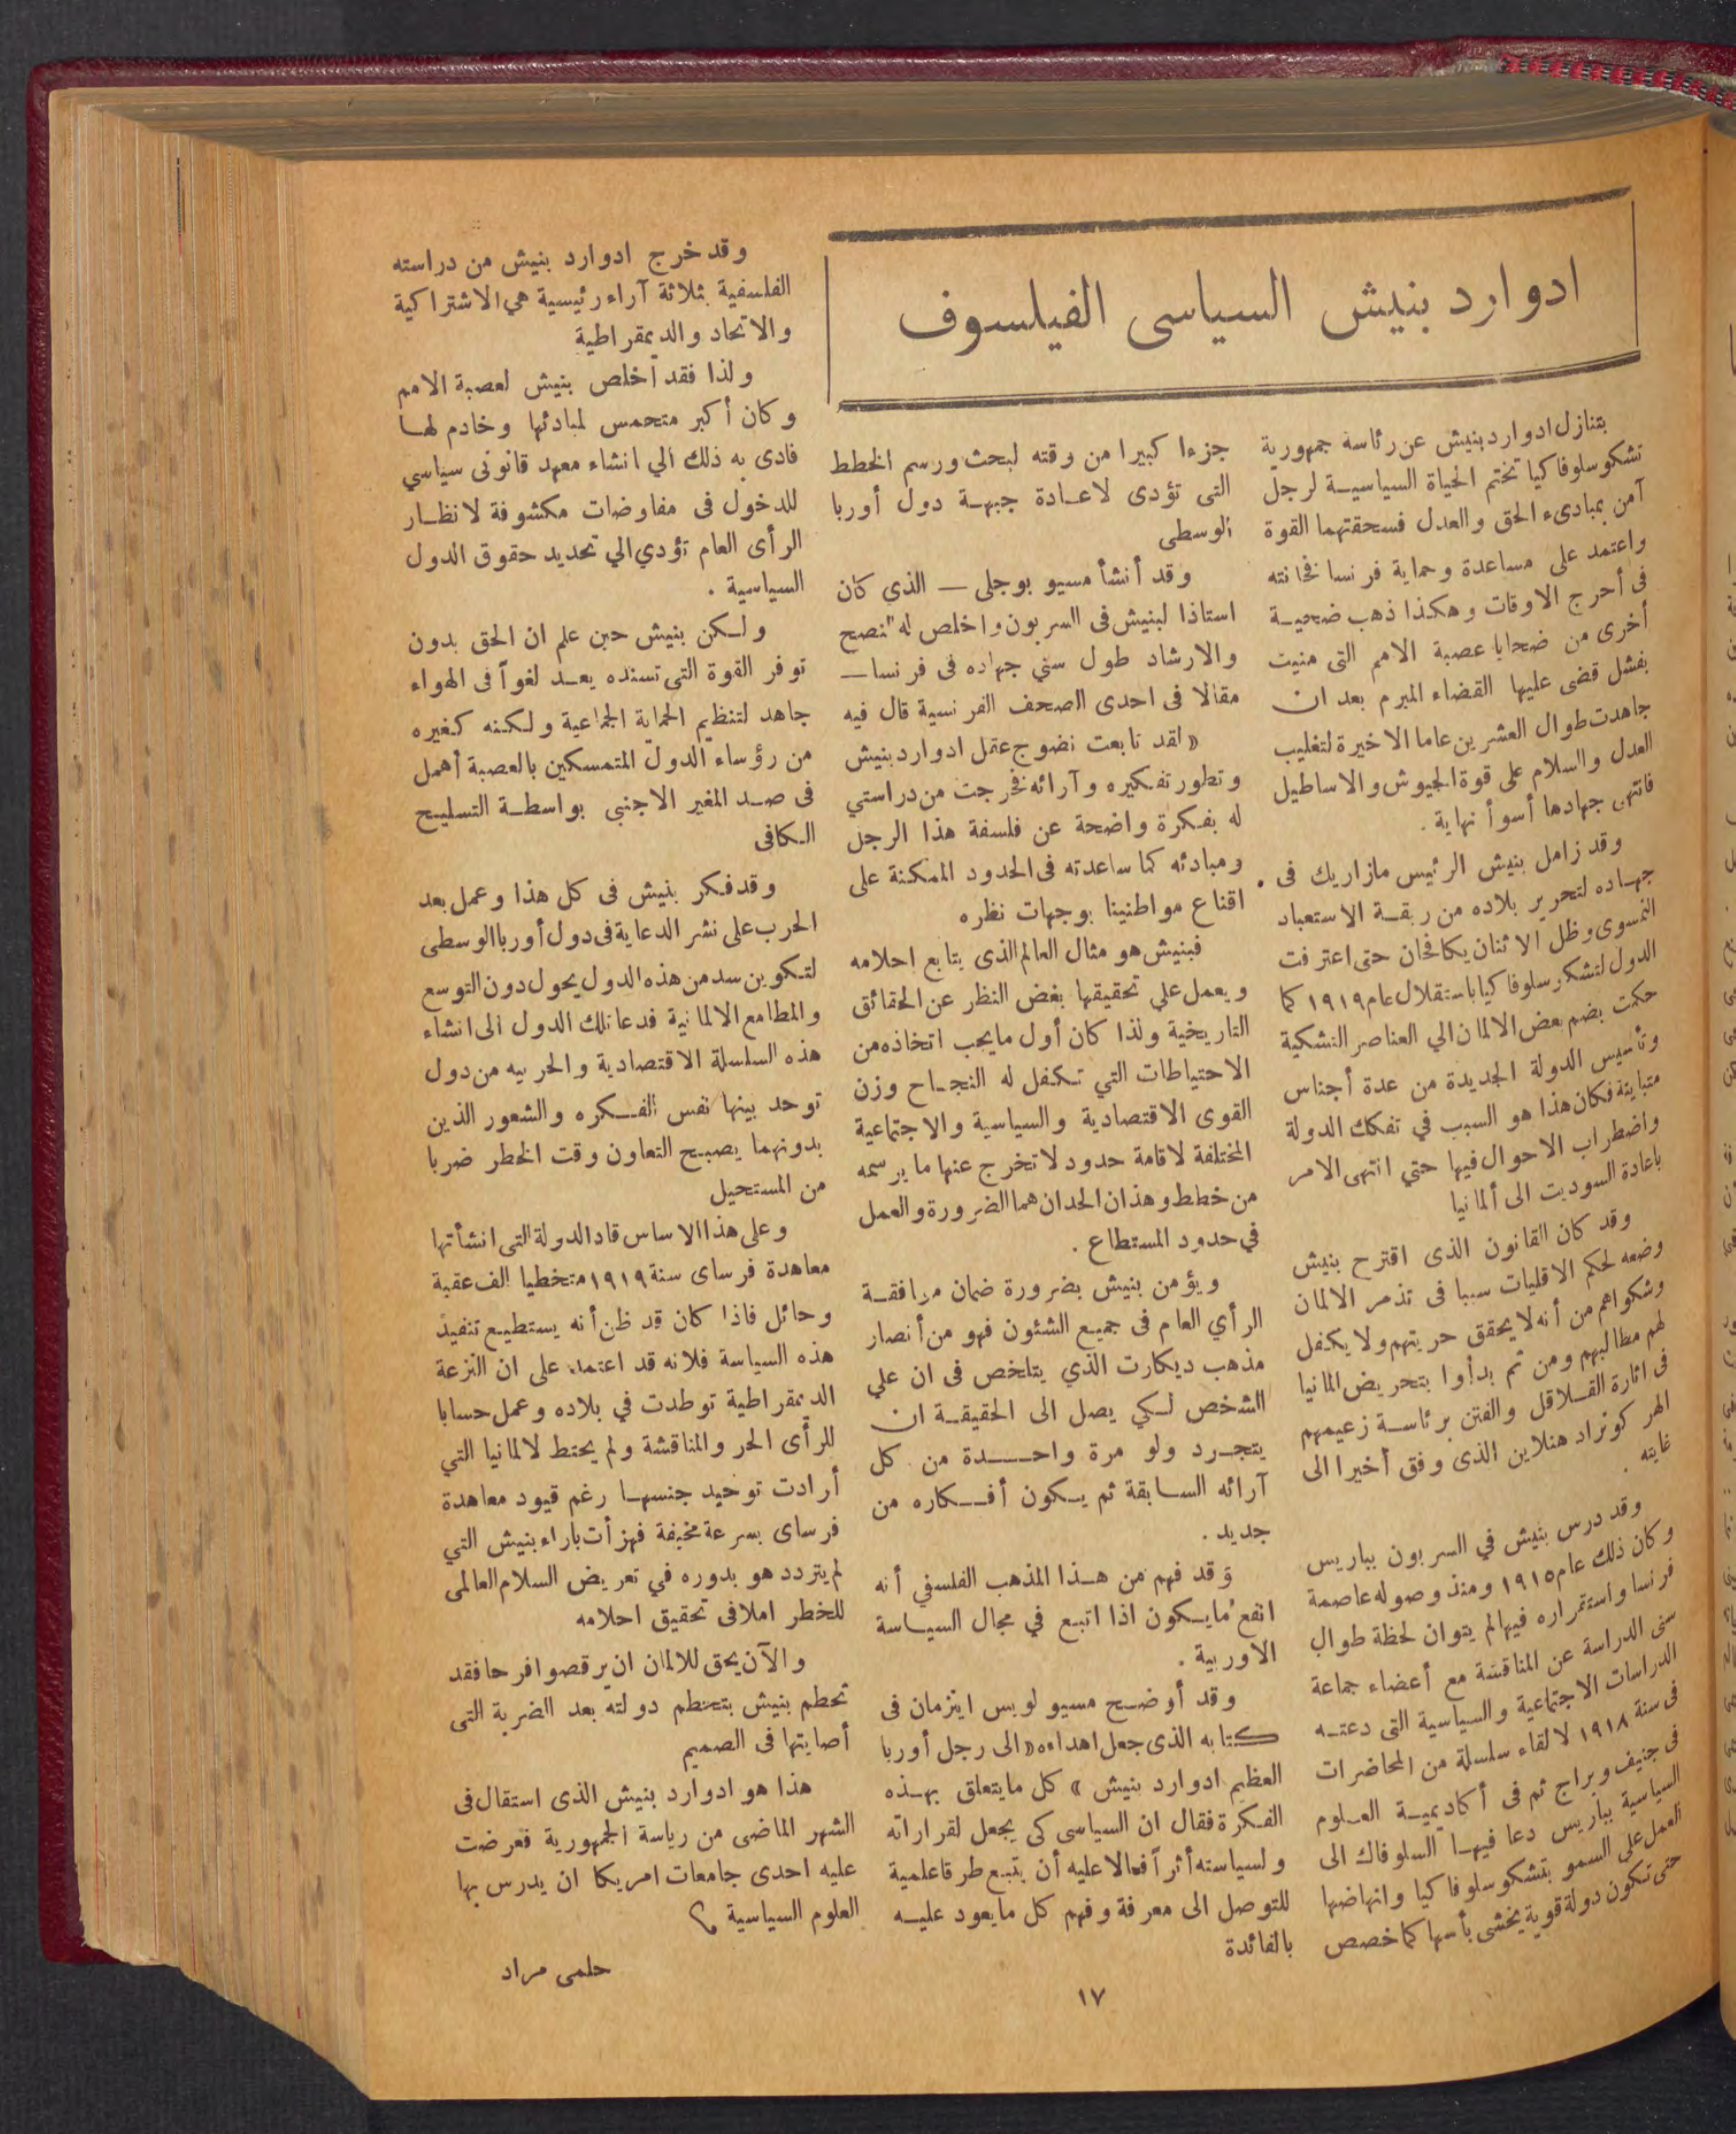 ادوارد بنيش السياسى الفيلسوف
بتنازل ادوارد بنيش عن رئاسة جمهورية
تشكوسلوفاكيا تختم الحياة السياسيـة لرجل
آمن بمبادىء الحق والعدل فسحقتهما القوة
واعتمد على مساعدة وحماية فرنسا فخانته
فى أحرج الاوقات وهكذا ذهب ضحيـة
أخرى من ضحايا عصبة الامم التى منيت
بفشل قضى عليها القضاء المبرم بعد ان
جاهدت طوال العشرين عاما الاخيرة لتغليب
العدل والسلام على قوة الجيوش والاساطيل
فانتهى جهادها أسوأ نهاية .
وقد زامل بنيش الرئيس مازاريك فى
جهـاده لتحرير بلاده من ربقـة الاستعباد
النمسوى وظل الاثنان يكافحان حتى اعترفت
الدول لتشكوسلوفاكيا باستقلال عام ١٩١٩ كما
حكمت بضم بعض الالمان الي العناصر التشكية
وتأسيس الدولة الجديدة من عدة أجناس
متباينة فكان هذا هو السبب في تفكك الدولة
واضطراب الاحوال فيها حتي انتهى الامر
باعادة السوديت الى ألمانيا
وقد كان القانون الذى اقترح بنيش
وضعه لحكم الاقليات سببا فى تذمر الالمان
وشكواهم من أنه لا يحقق حريتهم ولا يكفل
لهم مطالبهم ومن ثم بدأوا بتحريض المانيا
فى اثارة القـلاقل والفتن برئاسـة زعيمهم
الهر كونراد هنلاين الذى وفق أخيرا الى
غايته .
وقد درس بنيش في السربون بباريس
وكان ذلك عام ١٩١٥ ومنذ وصوله عاصمة
فرنسا واستقراره فيها لم يتوان لحظة طوال
سنى الدراسة عن المناقشة مع أعضاء جماعة
الدراسات الاجتماعية والسياسية التى دعتـه
فى سنة ١٩١٨ لالقاء سلسلة من المحاضرات
فى جنيف وبراج ثم فى أكاديميـة العـلوم
السياسية بباريس دعا فيهـا السلوفاك الى
العمل على السمو بتشكوسلوفاكيا وانهاضها
حتى تكون دولة قوية يخشى بأسها كما خصص
جزءا كبيرا من وقته لبحث ورسم الخطط
التى تؤدى لاعـادة جبهـة دول أوربا
الوسطى
وقد أنشأ مسيو بوجلى — الذي كان
استاذا لبنيش فى السربون واخلص له النصح
والارشاد طول سني جهاده فى فرنسا —
مقالا فى احدى الصحف الفرنسية قال فيه
« لقد تابعت نضوج عقل ادوارد بنيش
وتطور تفكيره وآرائه فخرجت من دراستي
له بفكرة واضحة عن فلسفة هذا الرجل
ومبادئه كما ساعدته فى الحدود الممكنة على
اقناع مواطنينا بوجهات نظره
فبنيش هو مثال العالم الذى يتابع احلامه
ويعمل علي تحقيقها بغض النظر عن الحقائق
التاريخية ولذا كان أول ما يجب اتخاذه من
الاحتياطات التي تكفل له النجـاح وزن
القوى الاقتصادية والسياسية والاجتماعية
المختلفة لاقامة حدود لا تخرج عنها ما يرسمه
من خطط وهذان الحدان هما الضرورة والعمل
في حدود المستطاع .
ويؤمن بنيش بضرورة ضمان موافقـة
الرأي العام فى جميع الشئون فهو من أنصار
مذهب ديكارت الذي يتلخص فى ان علي
الشخص لـكي يصل الى الحقيقـة ان
يتجـرد ولو مرة واحـــدة من كل
آرائه السـابقة ثم يـكون أفـكاره من
جديد .
وقد فهم من هـذا المذهب الفلسفي أنه
انفع ما يـكون اذا اتبع في مجال السيـاسة
الاوربية .
وقد أوضـح مسيو لويس ايزمان فى
كتابه الذى جعل اهداءه « الى رجل أوربا
العظيم ادوارد بنيش » كل ما يتعلق بهـذه
الفـكرة فقال ان السياسى كى يجعل لقراراته
ولسياسته أثراً فعالا عليه أن يتبع طرقا علمية
للتوصل الى معرفة وفهم كل ما يعود عليـه
بالفائدة
وقد خرج ادوارد بنيش من دراسته
الفلسفية بثلاثة آراء رئيسية هي الاشتراكية
والاتحاد والديمقراطية
ولذا فقد أخلص بنيش لعصبة الامم
وكان أكبر متحمس لمبادئها وخادم لهـا
فادى به ذلك الي انشاء معهد قانونى سياسي
للدخول فى مفاوضات مكشوفة لانظـار
الرأى العام تؤدي الي تحديد حقوق الدول
السياسية .
ولـكن بنيش حين علم ان الحق بدون
توفر القوة التى تسنده يعـد لغواً فى الهواء
جاهد لتنظيم الحماية الجماعية ولـكنه كغيره
من رؤساء الدول المتمسكين بالعصبة أهمل
فى صـد المغير الاجنبي بواسطـة التسليـح
الـكافى
وقد فكر بنيش فى كل هذا وعمل بعد
الحرب على نشر الدعاية فى دول أوربا الوسطى
لتـكوين سد من هذه الدول يحول دون التوسع
والمطامع الالمانية فدعا تلك الدول الى انشاء
هذه السلسلة الاقتصادية والحربيه من دول
توحد بينها نفس الفـكره والشعور الذين
بدونهما يصبـح التعاون وقت الخطر ضربا
من المستحيل
وعلى هذا الاساس قاد الدولة التى انشأتها
معاهدة فرساى سنة ١٩١٩ متخطيا الف عقبة
وحائل فاذا كان قد ظن أنه يستطيـع تنفيذ
هذه السياسة فلانه قد اعتمد على ان النزعة
الديمقراطية توطدت في بلاده وعمل حسابا
للرأى الحر والمناقشة ولم يحتط لالمانيا التي
أرادت توحيد جنسهـا رغم قيود معاهدة
فرساى بسرعة مخيفة فهزأت باراء بنيش التي
لم يتردد هو بدوره في تعريض السلام العالمى
للخطر املا فى تحقيق احلامه
والآن يحق للالمان ان يرقصوا فرحا فقد
تحطم بنيش بتحطم دولته بعد الضربة التى
أصابتها فى الصميم
هذا هو ادوارد بنيش الذى استقال فى
الشهر الماضى من رياسة الجمهورية فعرضت
عليه احدى جامعات امريكا ان يدرس بها
العلوم السياسية ؟
حلمى مراد
١٧